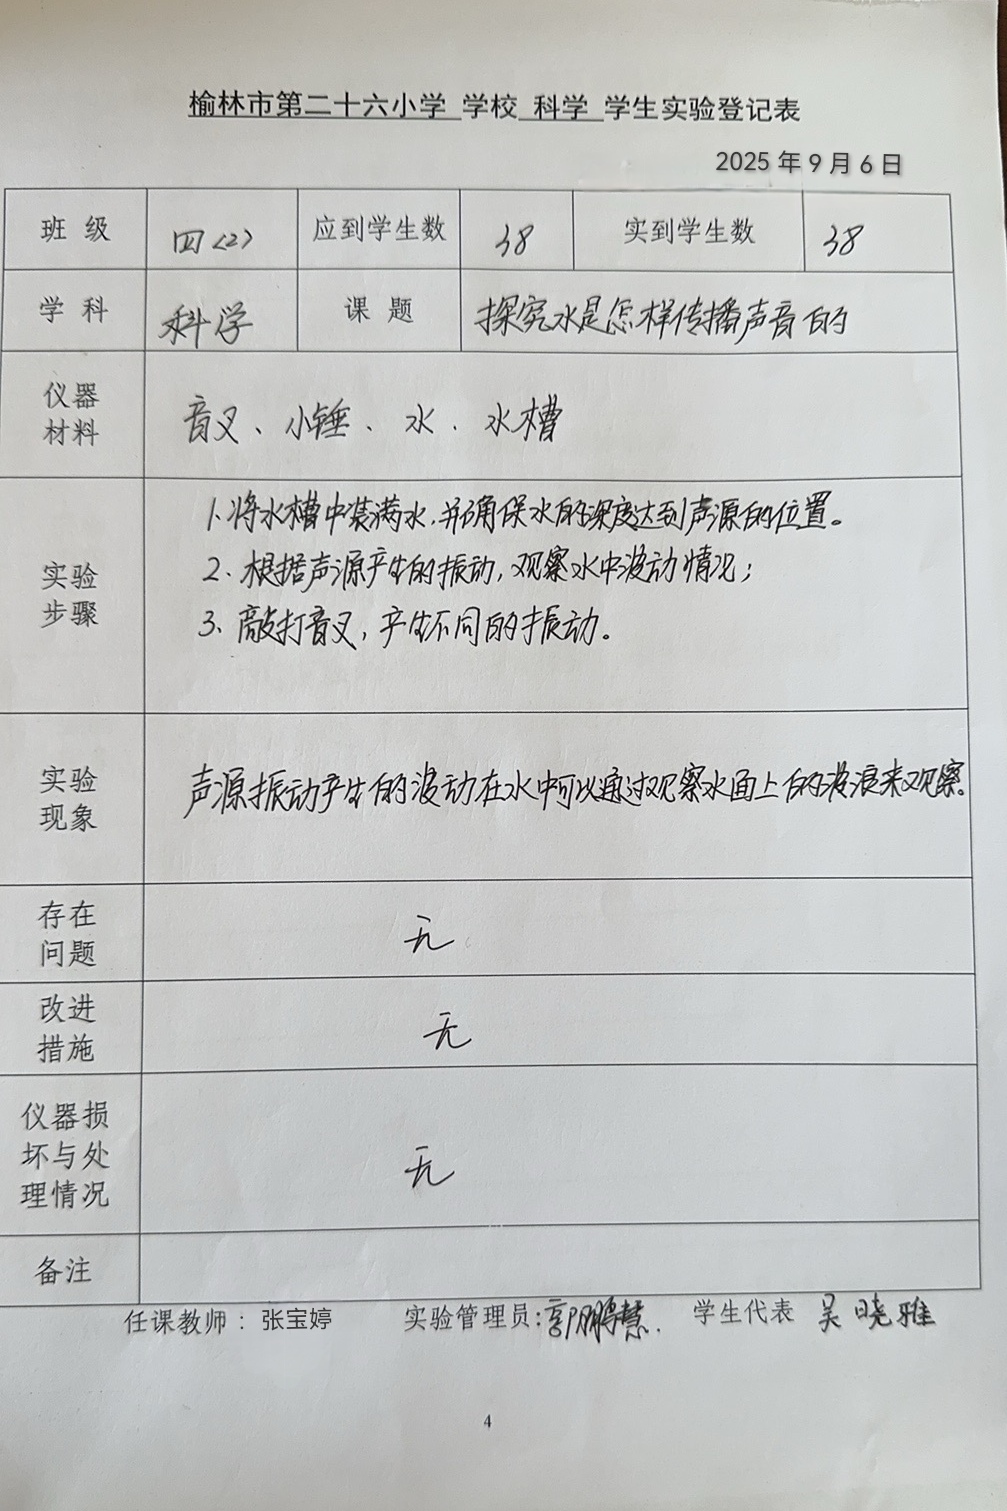 榆林市第二十六小学 学校 科学 学生实验登记表
2025 年 9 月 6 日
班 级 四(2) 应到学生数 38 实到学生数 38
学 科 科学 课 题 探究水是怎样传播声音的
仪器
材料
音叉、小锤、水、水槽
实验
步骤
1、将水槽中装满水,并确保水的深度达到声源的位置。
2、根据声源产生的振动,观察水中波动情况;
3、敲打音叉,产生不同的振动。
实验
现象
声源振动产生的波动在水中可以通过观察水面上的波浪来观察。
存在
问题
无
改进
措施
无
仪器损
坏与处
理情况
无
备注
任课教师: 张宝婷 实验管理员:郭鹏慧. 学生代表 吴晓雅
4